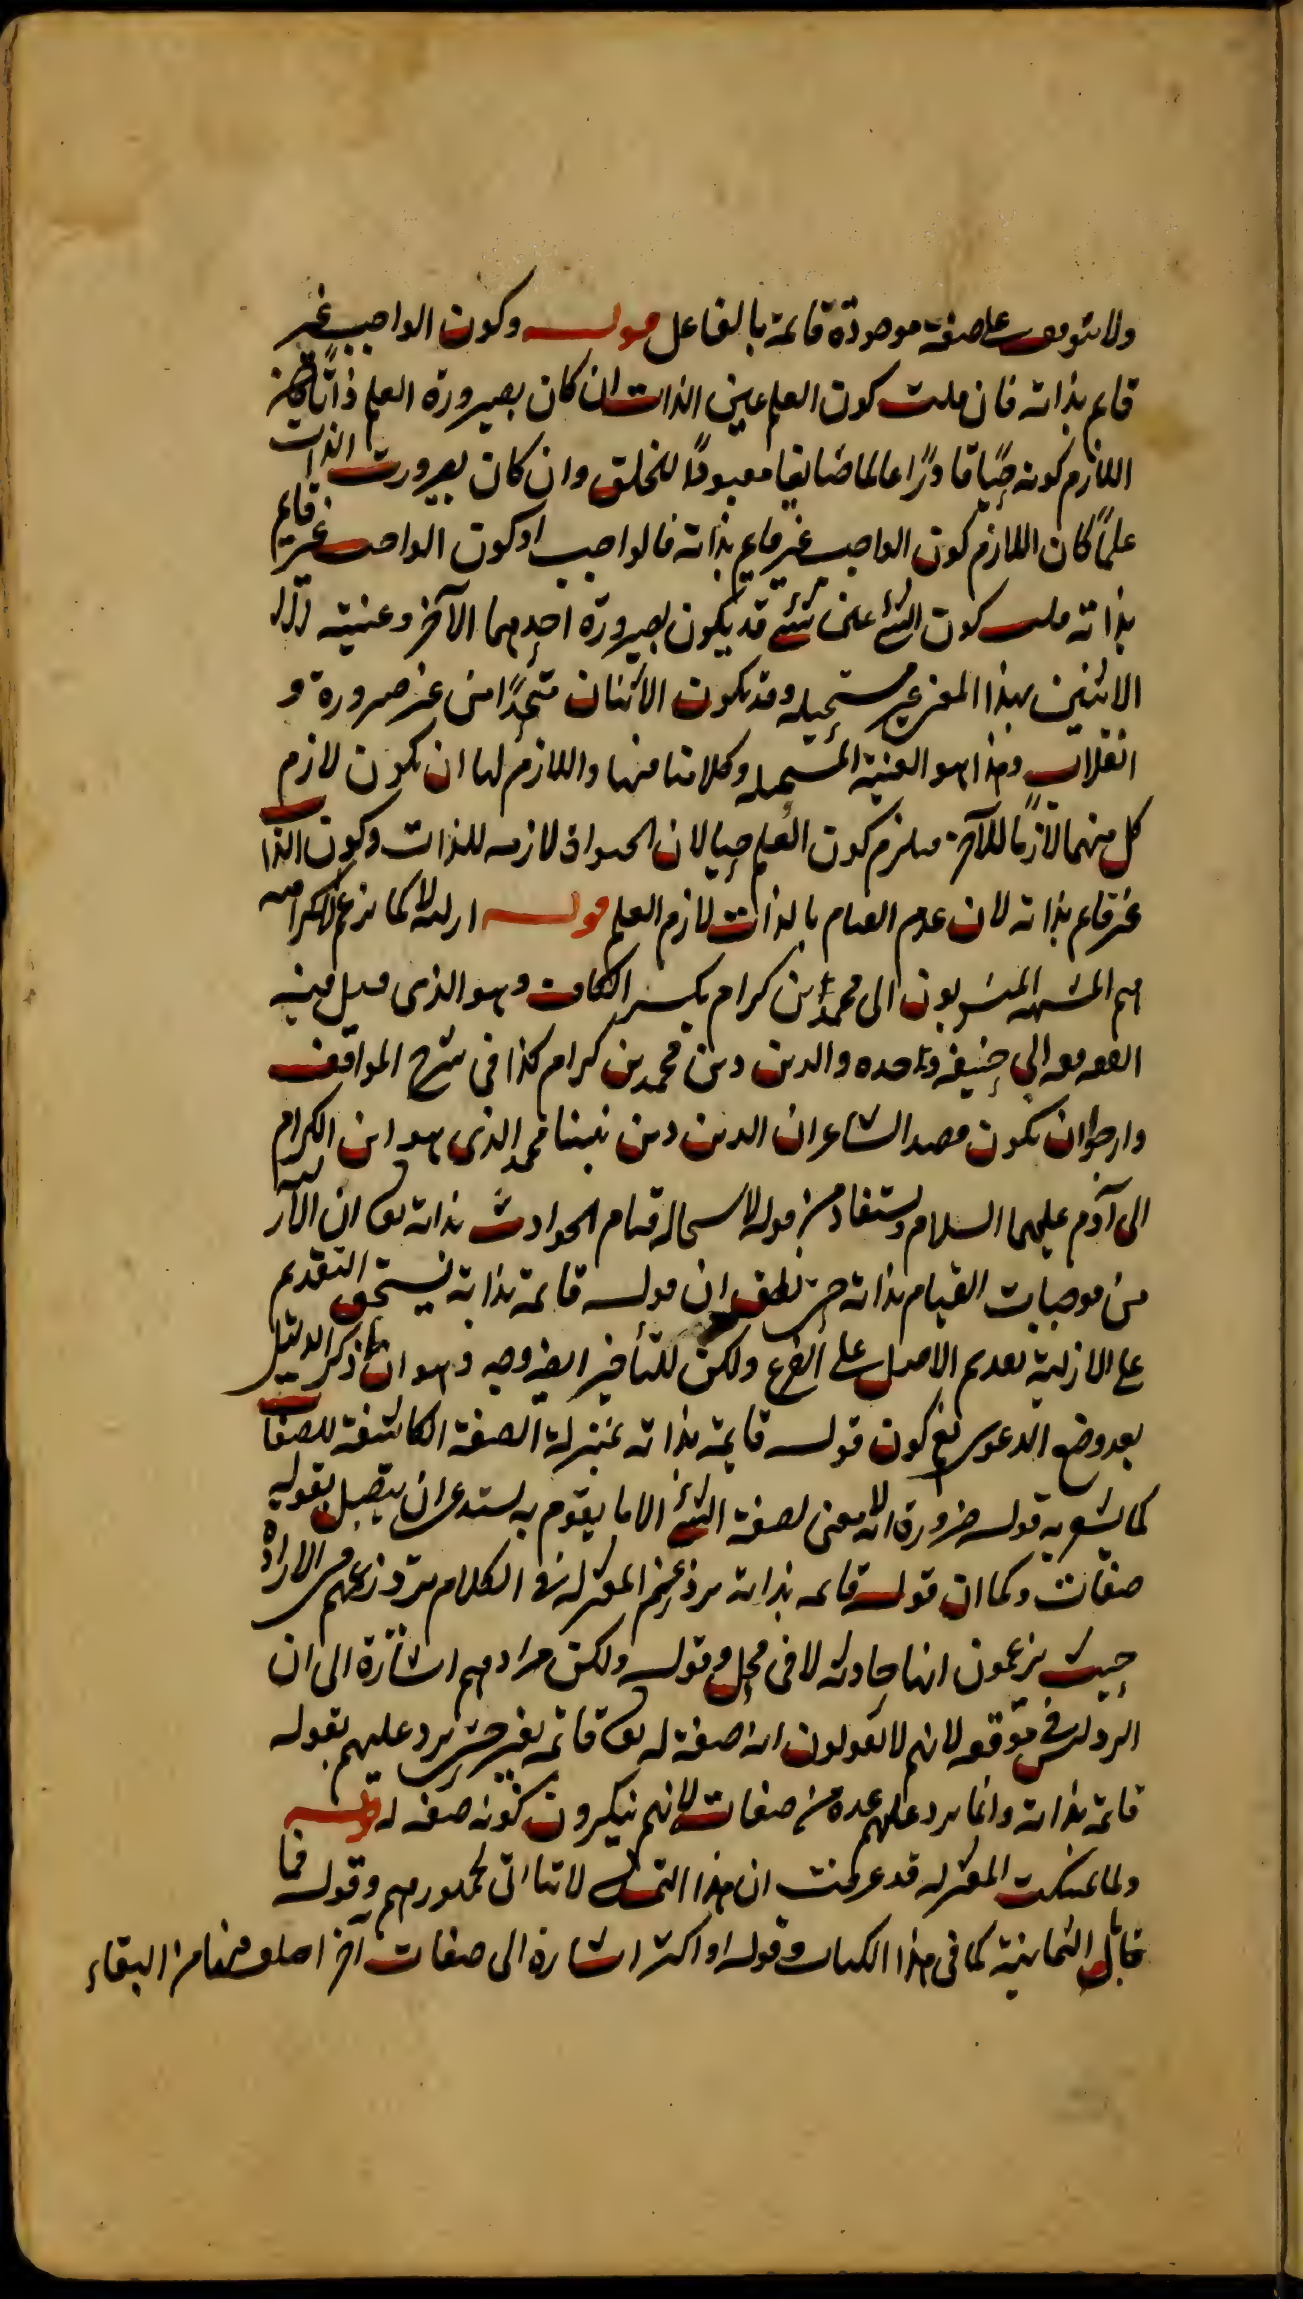 ولا يتوقف على صفة موجودة قائمة بالفاعل قوله وكون الواجب غير
قايم بذاته فان قلت كون العلم عين الذات ان كان بصيرورة العلم ذاتا كان
اللازم كونه حيًا قادرًا عالما صانعا معبودًا للخلق وان كان بصيرورت الذات
علمًا كان اللازم كون الواجب غير قايم بذاته فالواجب او كون الواجب غير قايم
بذاته قلت كون الشئ عين شئ قد يكون بصيرورة احدهما الآخر وعينية
الاثنين بهذا المعنى غير مستحيلة وقد يكون الاثنان متحدًا من غير صيرورة و
انقلاب وهذا هو العينية المستحيلة وكلامنا فيها واللازم لها ان يكون لازم
كل منهما لازمًا للآخر فيلزم كون العلم حيا لان الحيوة لازمة للذات وكون الذا
غير قايم بذاته لان عدم القيام بالذات لازم العلم قوله ازلية لا كما يزعم الكرامية
هم المشبهة المنسوبون الى محمد بن كرام بكسر الكاف وهو الذى قيل فيه
الفقه فقه ابى حنيفة وحده والدين دين محمد بن كرام كذا فى شرح المواقف
وارجو ان يكون قصد الشاعر ان الدين دين نبينا محمد الذى هو ابن الكرام
الى آدم عليهما السلام ويستفاد من قوله لاستحالة قيام الحوادث بذاته تعالى ان الازلية
من موجبات القيام بذاته حتى نطق ان قوله قائمة بذاته يستحق التقديم
على الازلية تقديم الاصل على الفرع ولكن للتأخير ايضا وجه وهو ان ذكر الدليل
بعد وضع الدعوى مع كون قوله قايمة بذاته بمنزلة الصفة الكاشفة للصفا
كما يشعر به قوله ضرورة انه لا معنى لصفة الشئ الا ما يقوم به يستدعى ان يتصل بقوله
صفات وكما ان قوله قائمة بذاته يرد زعم المعتزلة فى الكلام يرد زعمهم فى الارادة
حيث يزعمون انها حادثة لا فى محل وقوله ولكن مرادهم اشارة الى ان
الرد ليس فى موقعه لانهم لا يقولون انه صفة له تعالى قائمة بغيره حتى يرد عليهم بقوله
قائمة بذاته وانما يرد عليهم عده من صفات لانهم ينكرون كونه صفة له قوله
ولما تمسكت المعتزلة قد عرفت ان هذا التمسك لا يتاتى لجمهورهم وقوله فما
قابل الثمانية كما فى هذا الكتاب وقوله او اكثر اشارة الى صفات آخر اختلف فيها من البقاء